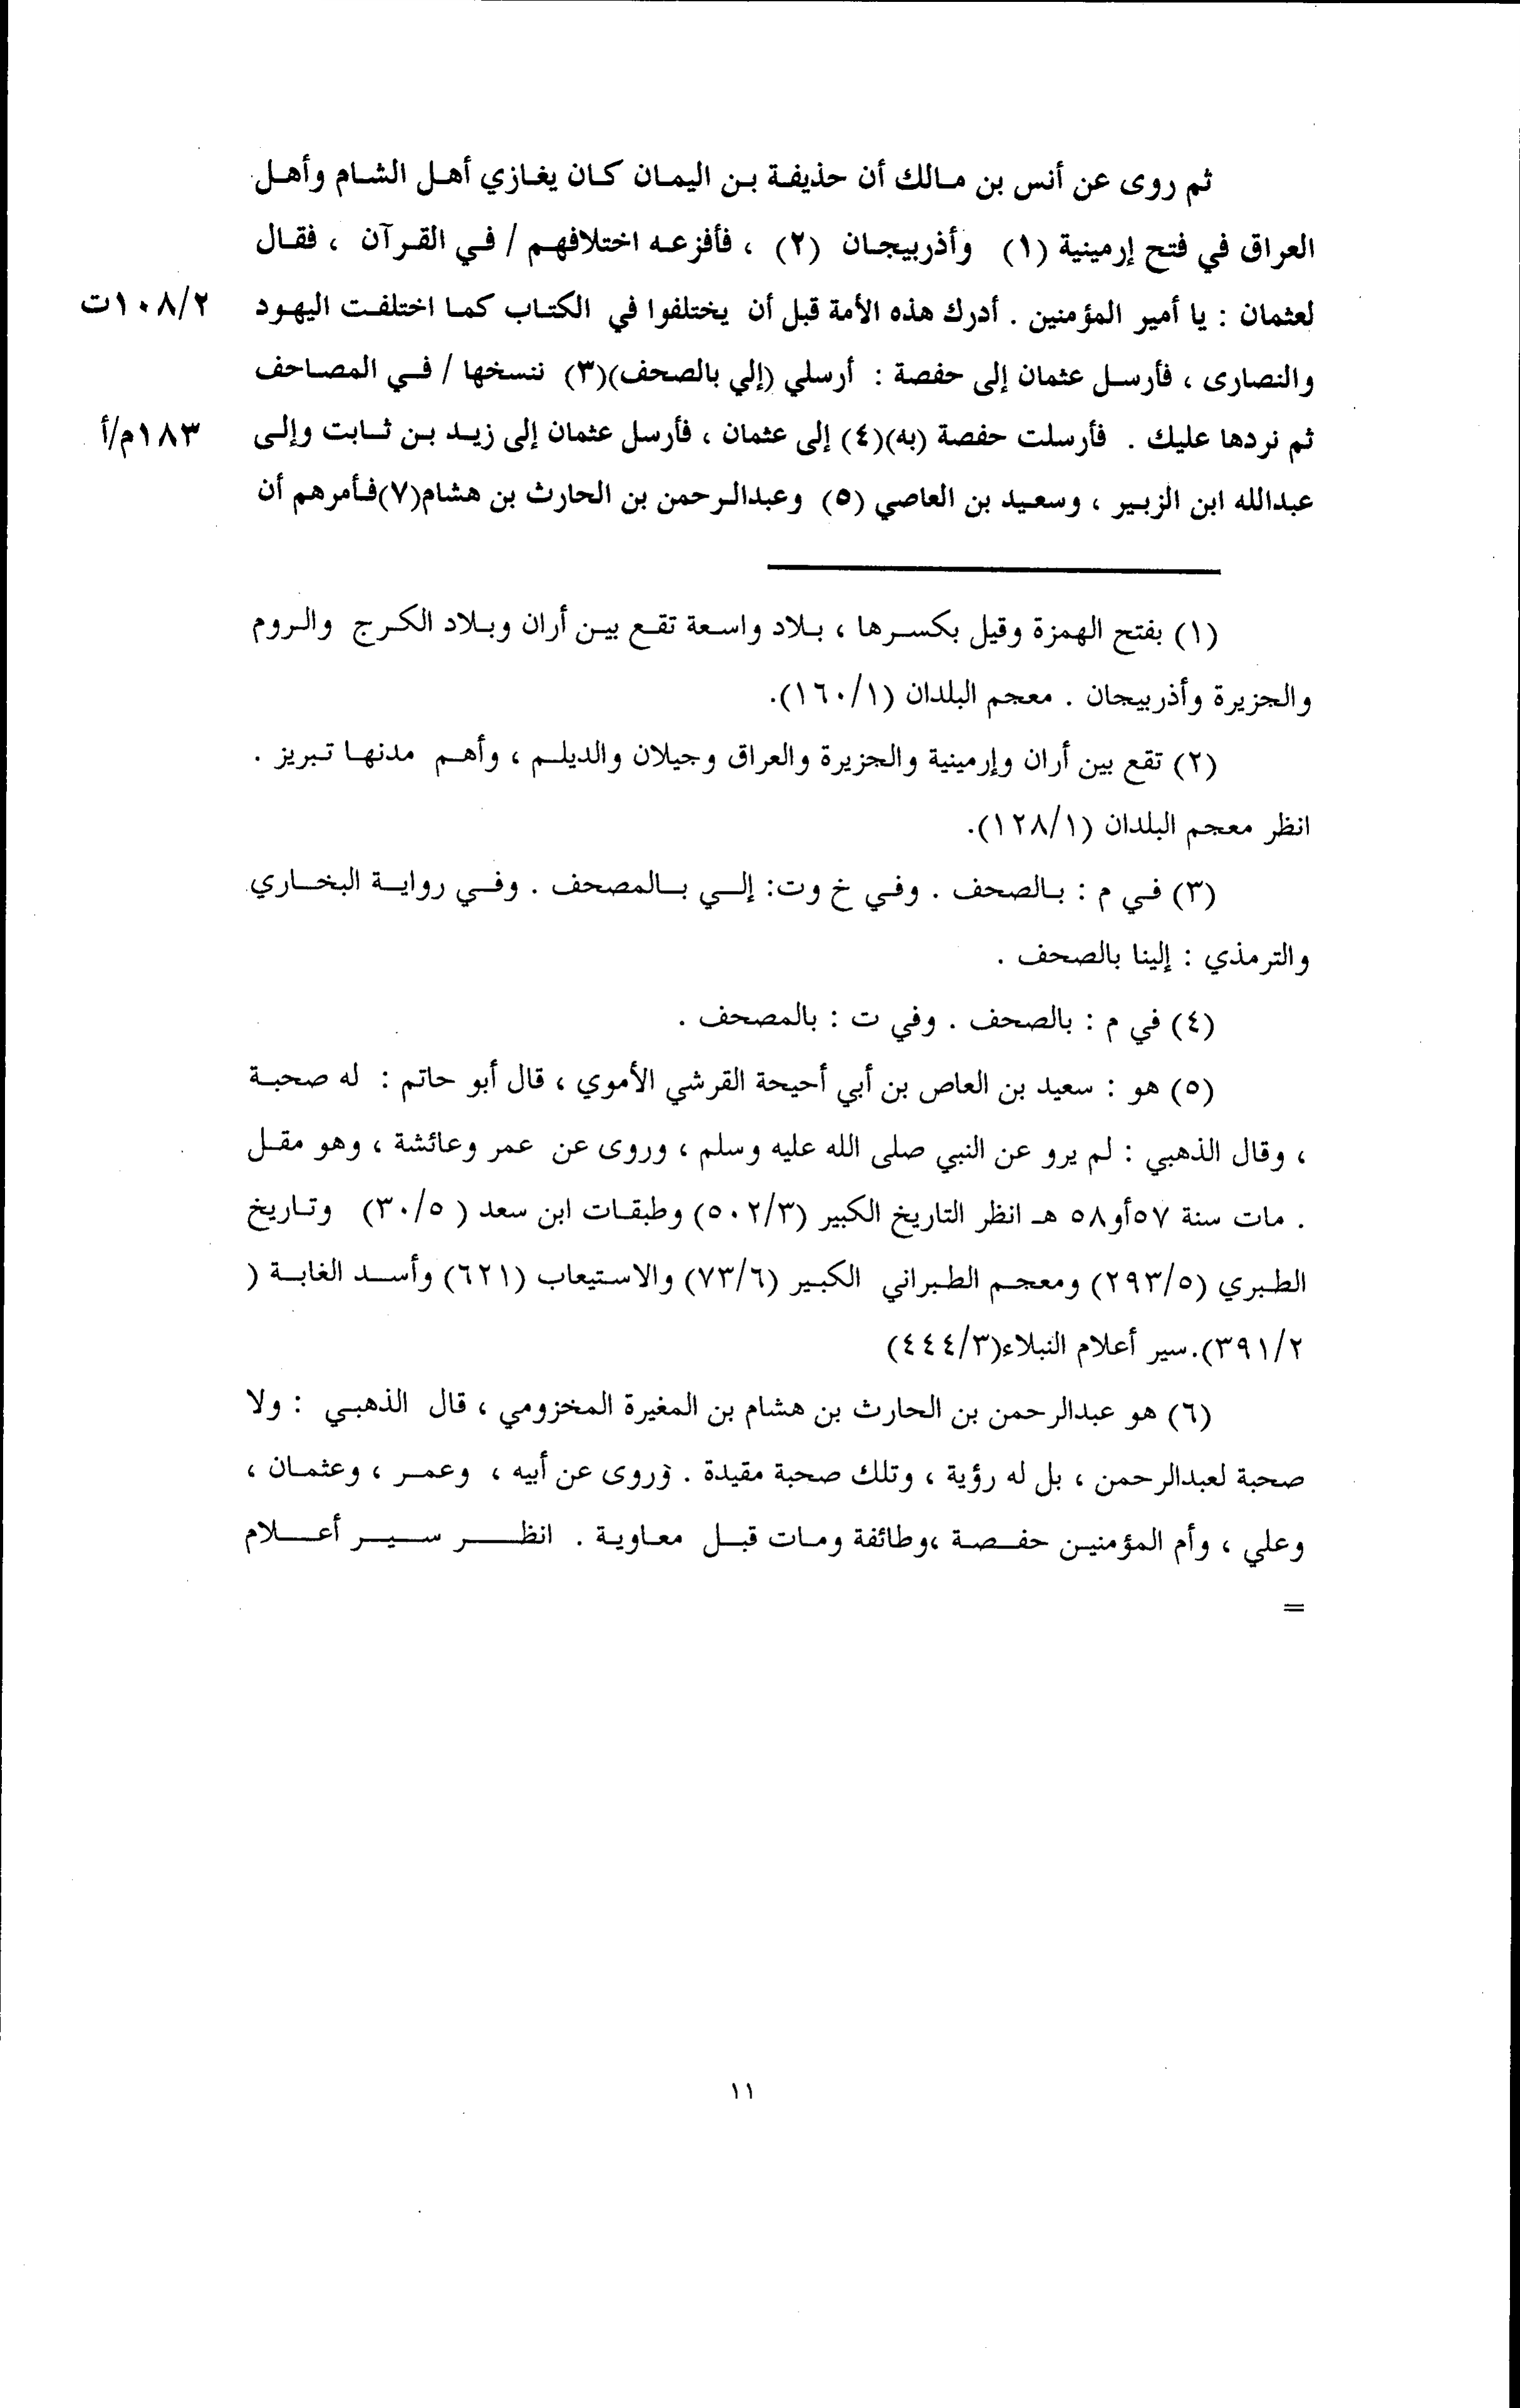 ثم روى عن أنس بن مالك أن حذيفة بن اليمان كان يغازي أهل الشام وأهل
العراق في فتح إرمينية (١) وأذربيجان (٢) ، فأفزعه اختلافهم / في القرآن ، فقال
لعثمان : يا أمير المؤمنين . أدرك هذه الأمة قبل أن يختلفوا في الكتاب كما اختلفت اليهود ١٠٨/٢ت
والنصارى ، فأرسل عثمان إلى حفصة : أرسلي (إلي بالصحف)(٣) ننسخها / في المصاحف
ثم نردها عليك . فأرسلت حفصة (به)(٤) إلى عثمان ، فأرسل عثمان إلى زيد بن ثابت وإلى ١٨٣م/أ
عبدالله ابن الزبير ، وسعيد بن العاصي (٥) وعبدالرحمن بن الحارث بن هشام(٧)فأمرهم أن
(١) بفتح الهمزة وقيل بكسرها ، بلاد واسعة تقع بين أران وبلاد الكرج والروم
والجزيرة وأذربيجان . معجم البلدان (١٦٠/١).
(٢) تقع بين أران وإرمينية والجزيرة والعراق وجيلان والديلم ، وأهم مدنها تبريز .
انظر معجم البلدان (١٢٨/١).
(٣) في م : بالصحف . وفي خ وت: إلي بالمصحف . وفي رواية البخاري
والترمذي : إلينا بالصحف .
(٤) في م : بالصحف . وفي ت : بالمصحف .
(٥) هو : سعيد بن العاص بن أبي أحيحة القرشي الأموي ، قال أبو حاتم : له صحبة
، وقال الذهبي : لم يرو عن النبي صلى الله عليه وسلم ، وروى عن عمر وعائشة ، وهو مقل
. مات سنة ٥٧أو٥٨ هـ انظر التاريخ الكبير (٥٠٢/٣) وطبقات ابن سعد ( ٣٠/٥) وتاريخ
الطبري (٢٩٣/٥) ومعجم الطبراني الكبير (٧٣/٦) والاستيعاب (٦٢١) وأسد الغابة (
٣٩١/٢).سير أعلام النبلاء(٤٤٤/٣)
(٦) هو عبدالرحمن بن الحارث بن هشام بن المغيرة المخزومي ، قال الذهبي : ولا
صحبة لعبدالرحمن ، بل له رؤية ، وتلك صحبة مقيدة . وروى عن أبيه ، وعمر ، وعثمان ،
وعلي ، وأم المؤمنين حفصة ،وطائفة ومات قبل معاوية . انظر سير أعلام
=
١١